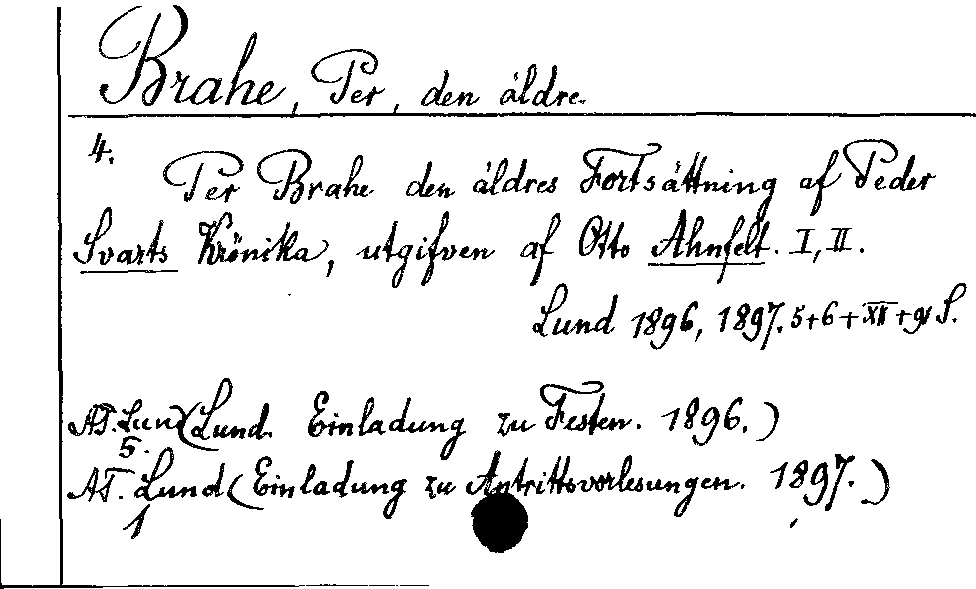 Brahe, Per, den äldre.
4.
Per Brahe den äldres Fortsättning af Peder
Svarts Krönika, utgifven af Otto Ahnfelt. I, II.
Lund 1896, 1897. 5+6+XII+91 S.
AT. Lund (Lund. Einladung zu Festen. 1896.)
5.
AT. Lund (Einladung zu Antrittsvorlesungen. 1897.)
1